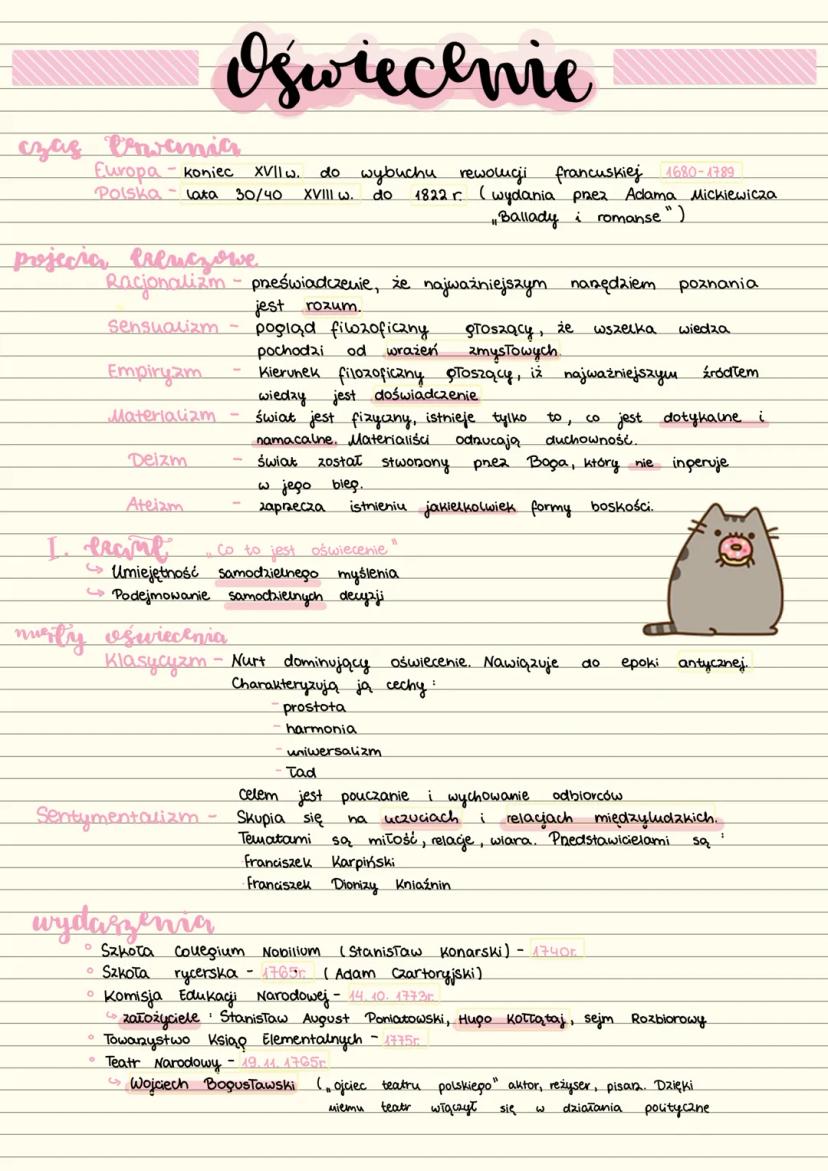 Oświecenie
czas trwania
Europa - koniec XVII w. do wybuchu rewolucji francuskiej 1680-1789
Polska - lata 30/40 XVIII w. do 1822 r. (wydania przez Adama Mickiewicza
„Ballady i romanse")
pojęcia kluczowe
Racjonalizm - przeświadczenie, że najważniejszym narzędziem poznania
jest rozum.
Sensualizm - pogląd filozoficzny głoszący, że wszelka wiedza
pochodzi od wrażeń zmysłowych.
Empiryzm - Kierunek filozoficzny głoszący, iż najważniejszym źródłem
wiedzy jest doświadczenie
Materializm - świat jest fizyczny, istnieje tylko to, co jest dotykalne i
namacalne. Materialiści odrzucają duchowność.
Deizm - świat został stworzony przez Boga, który nie ingeruje
w jego bieg.
Ateizm - zaprzecza istnieniu jakiejkolwiek formy boskości.
I. Kant „Co to jest oświecenie"
↳ Umiejętność samodzielnego myślenia
↳ Podejmowanie samodzielnych decyzji
nurty oświecenia
Klasycyzm - Nurt dominujący oświecenie. Nawiązuje do epoki antycznej.
Charakteryzują ją cechy:
- prostota
- harmonia
- uniwersalizm
- ład
Celem jest pouczanie i wychowanie odbiorców
Sentymentalizm - Skupia się na uczuciach i relacjach międzyludzkich.
Tematami są miłość, relacje, wiara. Przedstawicielami są:
· Franciszek Karpiński
· Franciszek Dionizy Kniaźnin
wydarzenia
° Szkoła Collegium Nobilium (Stanisław Konarski) - 1740r.
° Szkoła rycerska - 1765r. (Adam Czartoryjski)
° Komisja Edukacji Narodowej - 14.10.1773r.
↳ założyciele: Stanisław August Poniatowski, Hugo Kołłątaj, sejm Rozbiorowy
° Towarzystwo Ksiąg Elementalnych - 1775r.
° Teatr Narodowy - 19.11.1765r.
↳ Wojciech Bogusławski („ojciec teatru polskiego" aktor, reżyser, pisarz. Dzięki
niemu teatr włączył się w działania polityczne